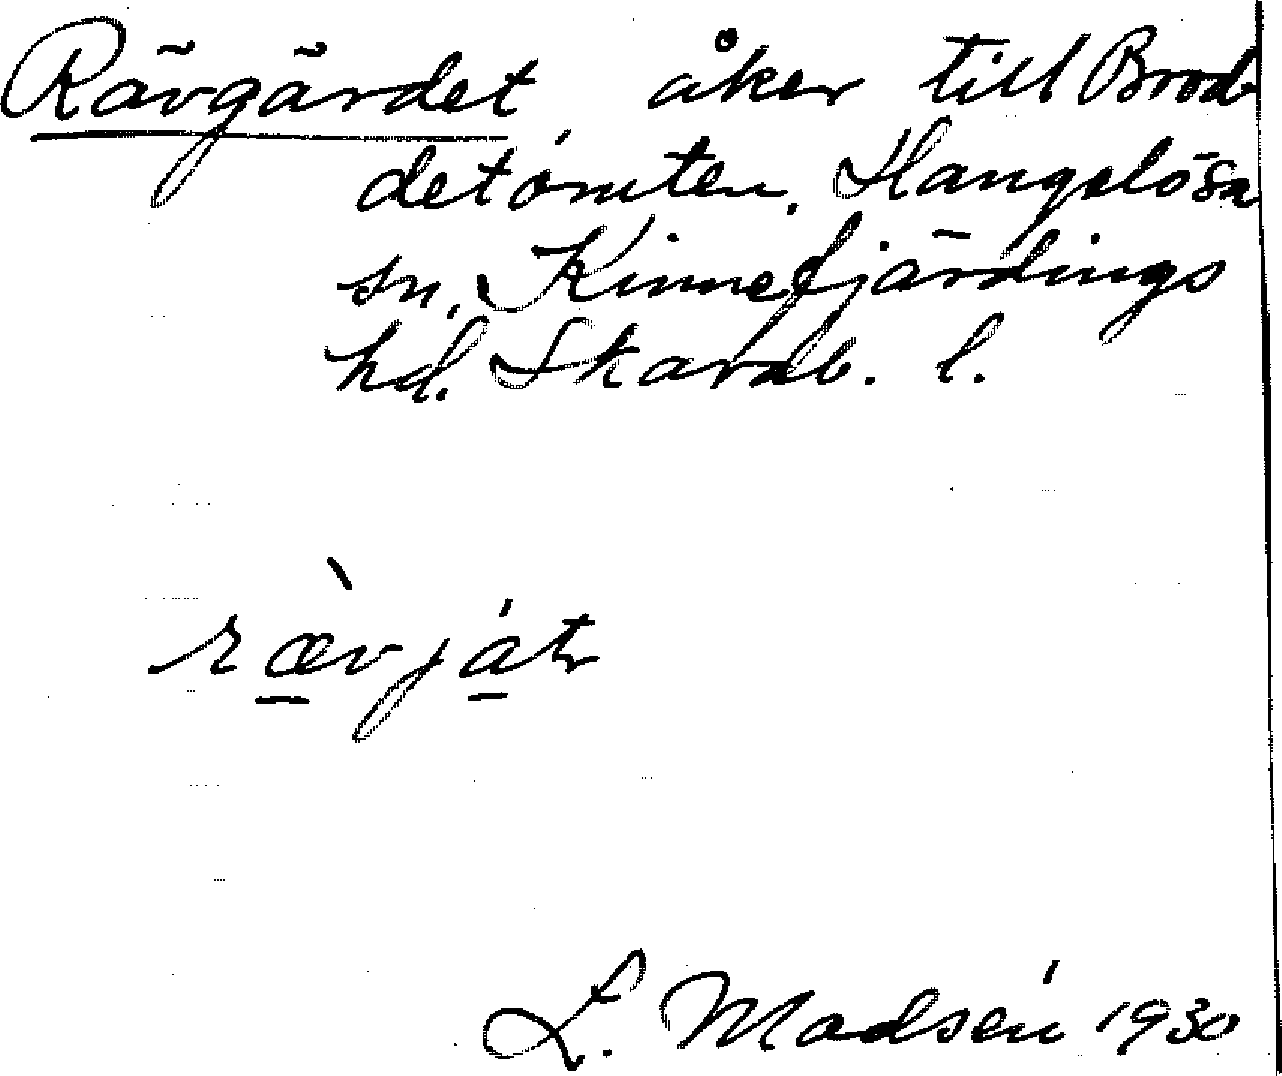 Rävgärdet åker till Brod-
detomten, Hangelösa
sn, Kinnefjärdings
hd. Skarab. l.
ræ̀vjátr
L. Madsén 1930